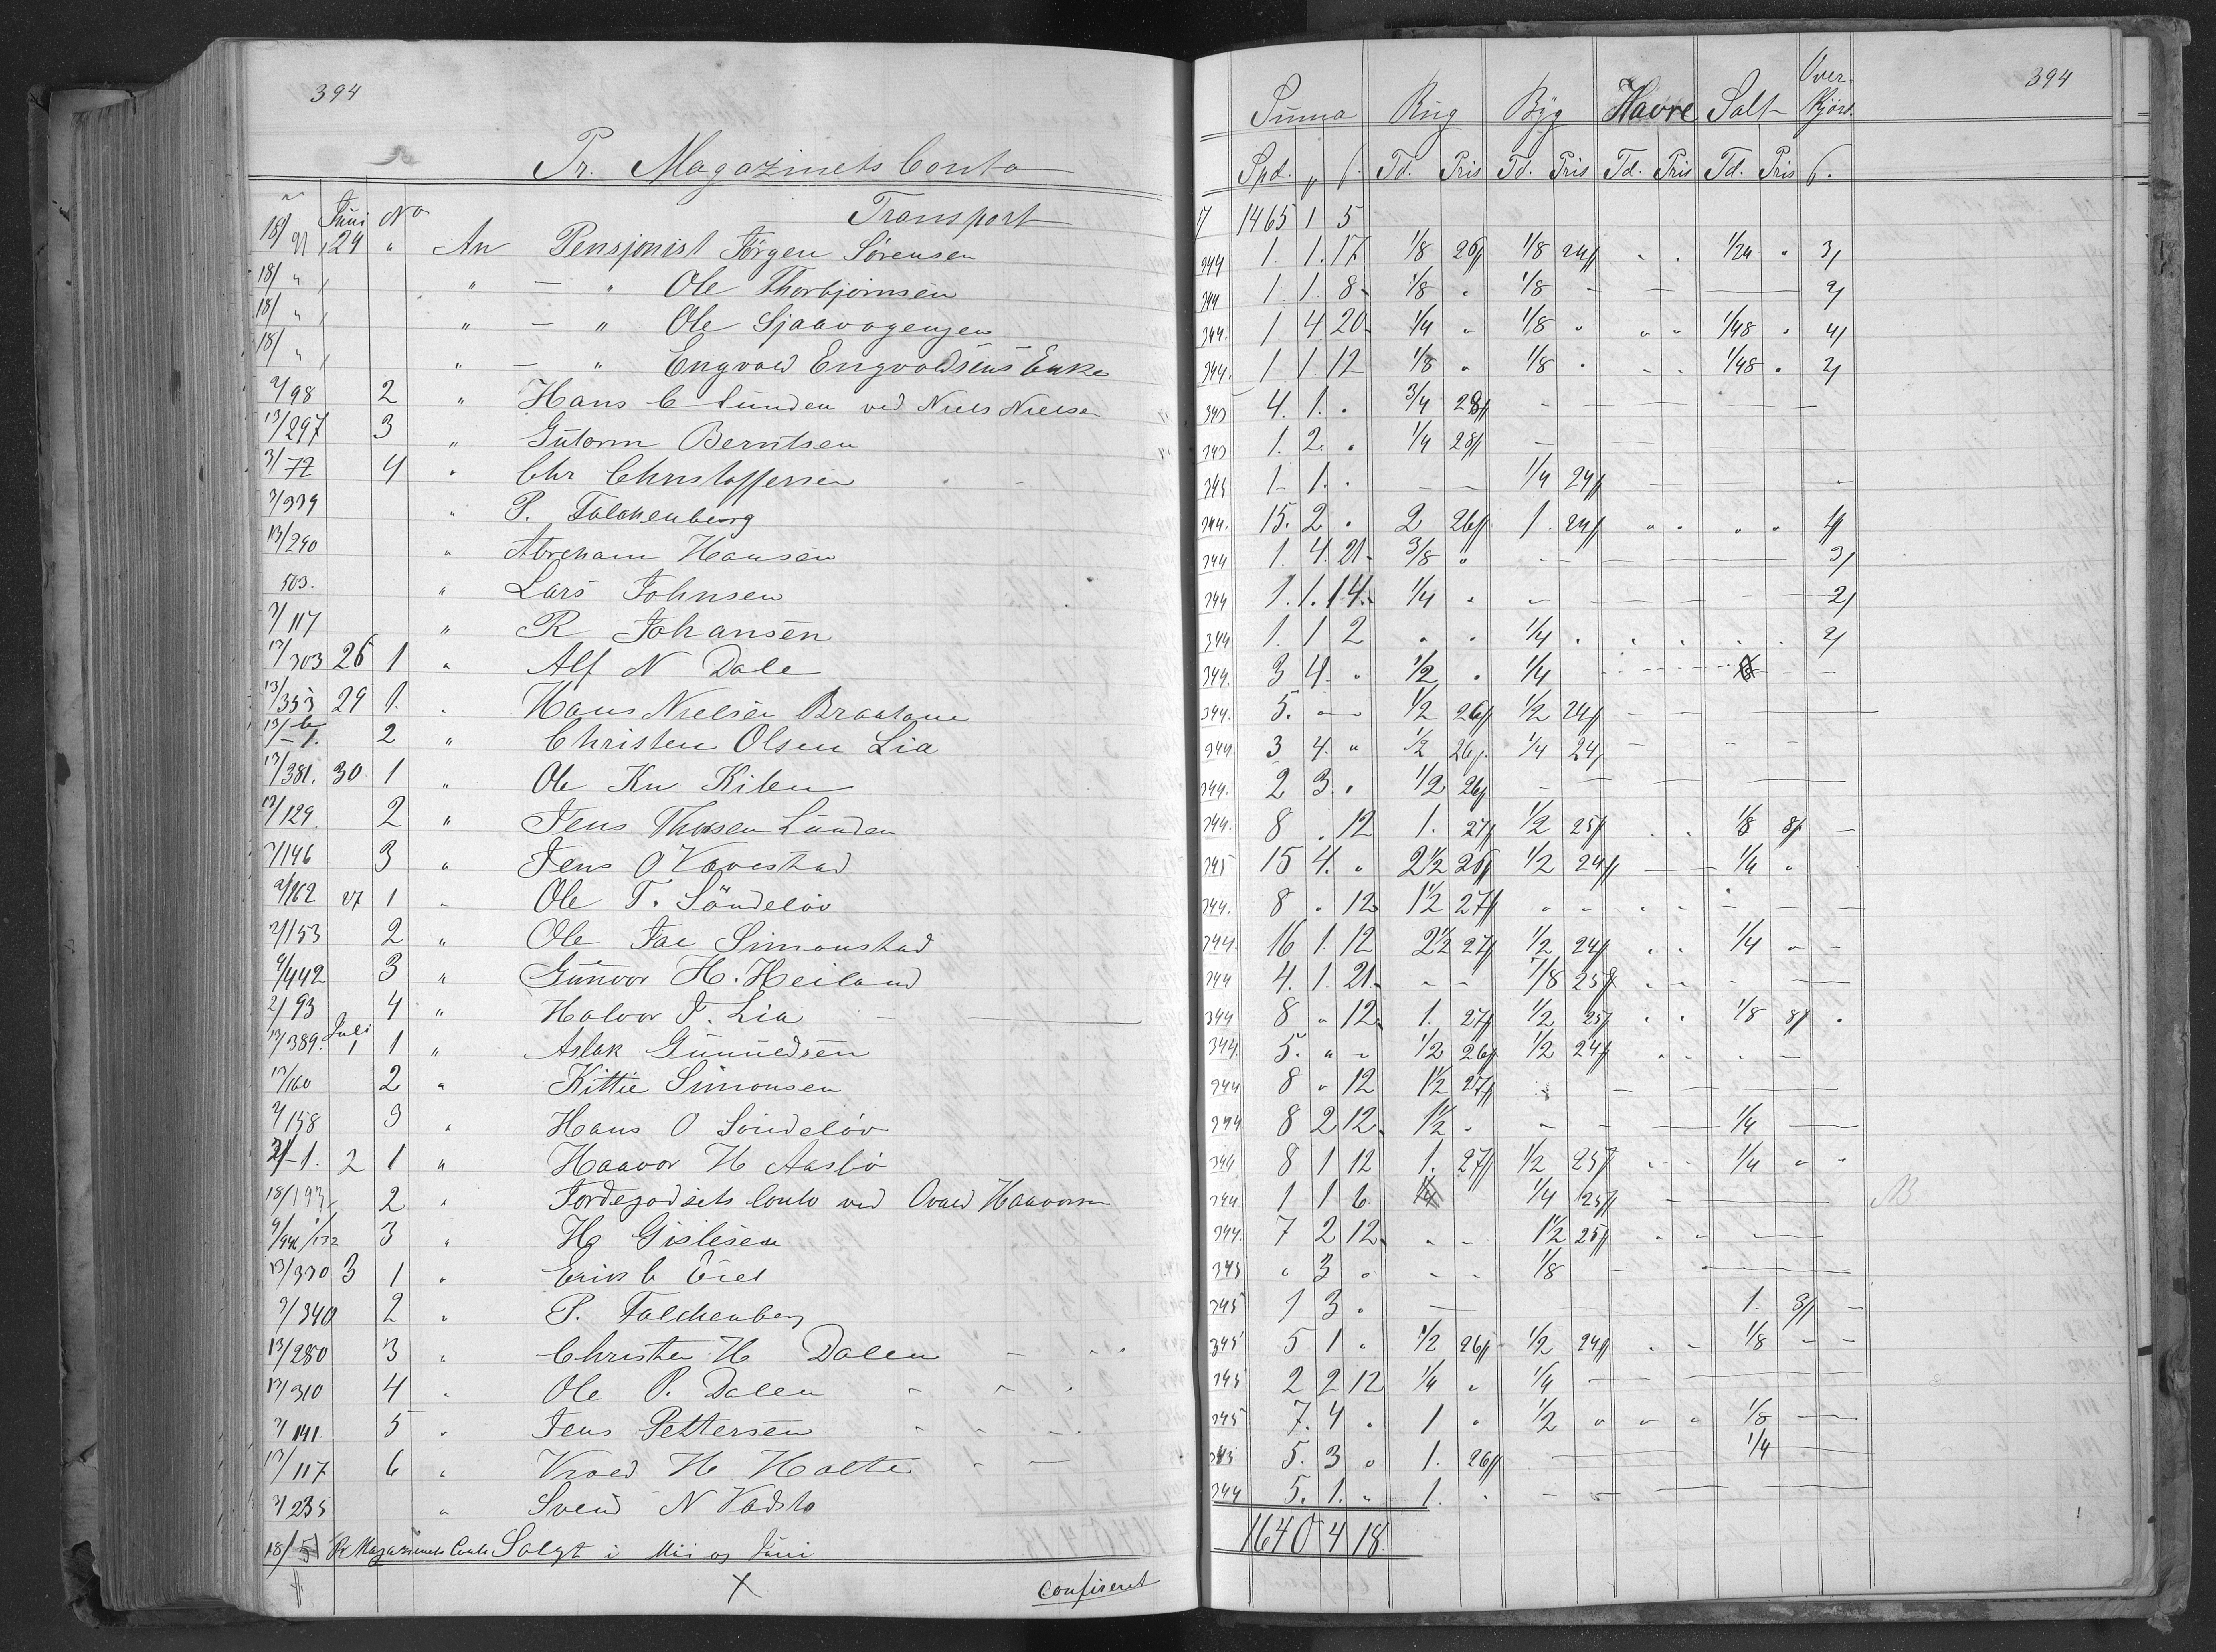 394
Pr. Magazinets Conto
Juni No Transport
18/91 24 " An Pensjonist Jörgen Sörensen
18/" " — " Ole Thorbjörnsen
18/" " — " Ole Sjaavogengen
18/" " — " Engvald Engvoldsens Enke
2/98 2 " Hans C Lunden ved Niels Nielsen
13/297 3 " Gutorm Berntsen
3/72 4 " Chr Christoffersen
2/339 " P. Falchenberg
13/290 " Abraham Hansen
503. " Lars Johnsen
2/117 " R Johansen
13/303 26 1 " Alf N Dale
13/353 29 1. " Hans Nielsen Braatane
13/6 - 1. 2 " Christen Olsen Lia
13/381. 30 1 " Ole Kn Kilen
13/129 2 " Jens Thorsen Lunden
2/146 3 " Jens O Vavestad
2/162 27 1 " Ole T. Söndelöv
2/153 2 " Ole Jac Simonstad
9/442 3 " Gunvor H. Heiland
2/93 4 " Halvor J. Lia
13/389. Juli 1 1 " Aslak Gunnedsen
13/160 2 " Kittie Simonsen
2/158 3 " Hans O Söndelöv
2/-1. 2 1 " Haavor H Aasbö
18/193 2 " Jordegodsets Conto ved Haavorsen
9/446 3 " H Gislesen
13/330 3 1 " Erik C
2/340 2 " P. Falchenberg
13/280 3 " Christen H Dalen
13/310 4 " Ole P. Dalen
2/141. 5 " Jens Pettersen
13/117 6 " H Holte
2/235 " Svend N Vadsto
18/5 Pr Magazinets Conto Solgt i Mai og Juni
Confereret
394
Summa Rug Byg Havre Salt Over-kjørs.
Spd. " ß. Td. Pris Td. Pris Td. Pris Td. Pris ß.
17 1465 1 5
344 1. 1. 17 1/8 26ß 1/8 24ß " " 1/24 " 3
344 1 1. 8 1/8 " 1/8 — — — 2
344. 1. 4 20 1/4 " 1/8 " " " 1/48 " 4
344. 1 1 12 1/8 " 1/8 " " " 1/48 " 2
343 4. 1. " 3/4 28ß — — —
343 1. 2. " 1/4 28ß — — —
345 1 1. " — — 1/4 24ß — — —
344. 15. 2 " 2 26ß 1. 24ß " " " " 4
344 1. 4. 21 3/8 " — — — 3
344 1. 1. 14. 1/4 " — — — 2
344 1. 1 2 " " 1/4 " " " " " 2
344. 3 4. " 1/2 " 1/4 — —
344. 5. — 1/2 26ß 1/2 24ß — — —
344. 3 4. " 1/2 26ß 1/4 24 — — —
344. 2 3. " 1/2 26ß — — —
344. 8 . 12 1. 27ß 1/2 25ß . . 1/8 8ß —
345 15 4. " 2 1/2 26ß 1/2 24ß — — 1/4 "
344. 8 " 12 1 1/2 27ß " " " " — — —
344. 16 1. 12 2 1/2 27ß 1/2 24ß . . 1/4 " —
344 4. 1. 21 — — 7/8 25ß . . . —
344 8 " 12 1. 27ß 1/2 25ß . . 1/8 8ß .
344. 5. " " 1/2 26ß 1/2 24ß . . . —
344 8 " 12 1 1/2 27ß — — —
344 8 2 12 1 1/2 . — — — 1/4 —
344 8 1 12 1. 27ß 1/2 25ß . . 1/4 " "
344 1 1 6 1/4 1/4 25ß — — —
344. 7 2 12 " — 1 1/2 25ß . . —
345 " 3 " — — 1/8 — — —
345 1 3 . — — — 1. 3ß —
345 5 1 . 1/2 26ß 1/2 24ß . — 1/8 — —
345 2 2 12 1/4 . 1/4 — — —
345 7. 4 . 1 . 1/2 " " " 1/8 —
343 5. 3 " 1. 26ß — — — 1/4 —
344 5. 1. " 1. . — — — —
1640 4 18.